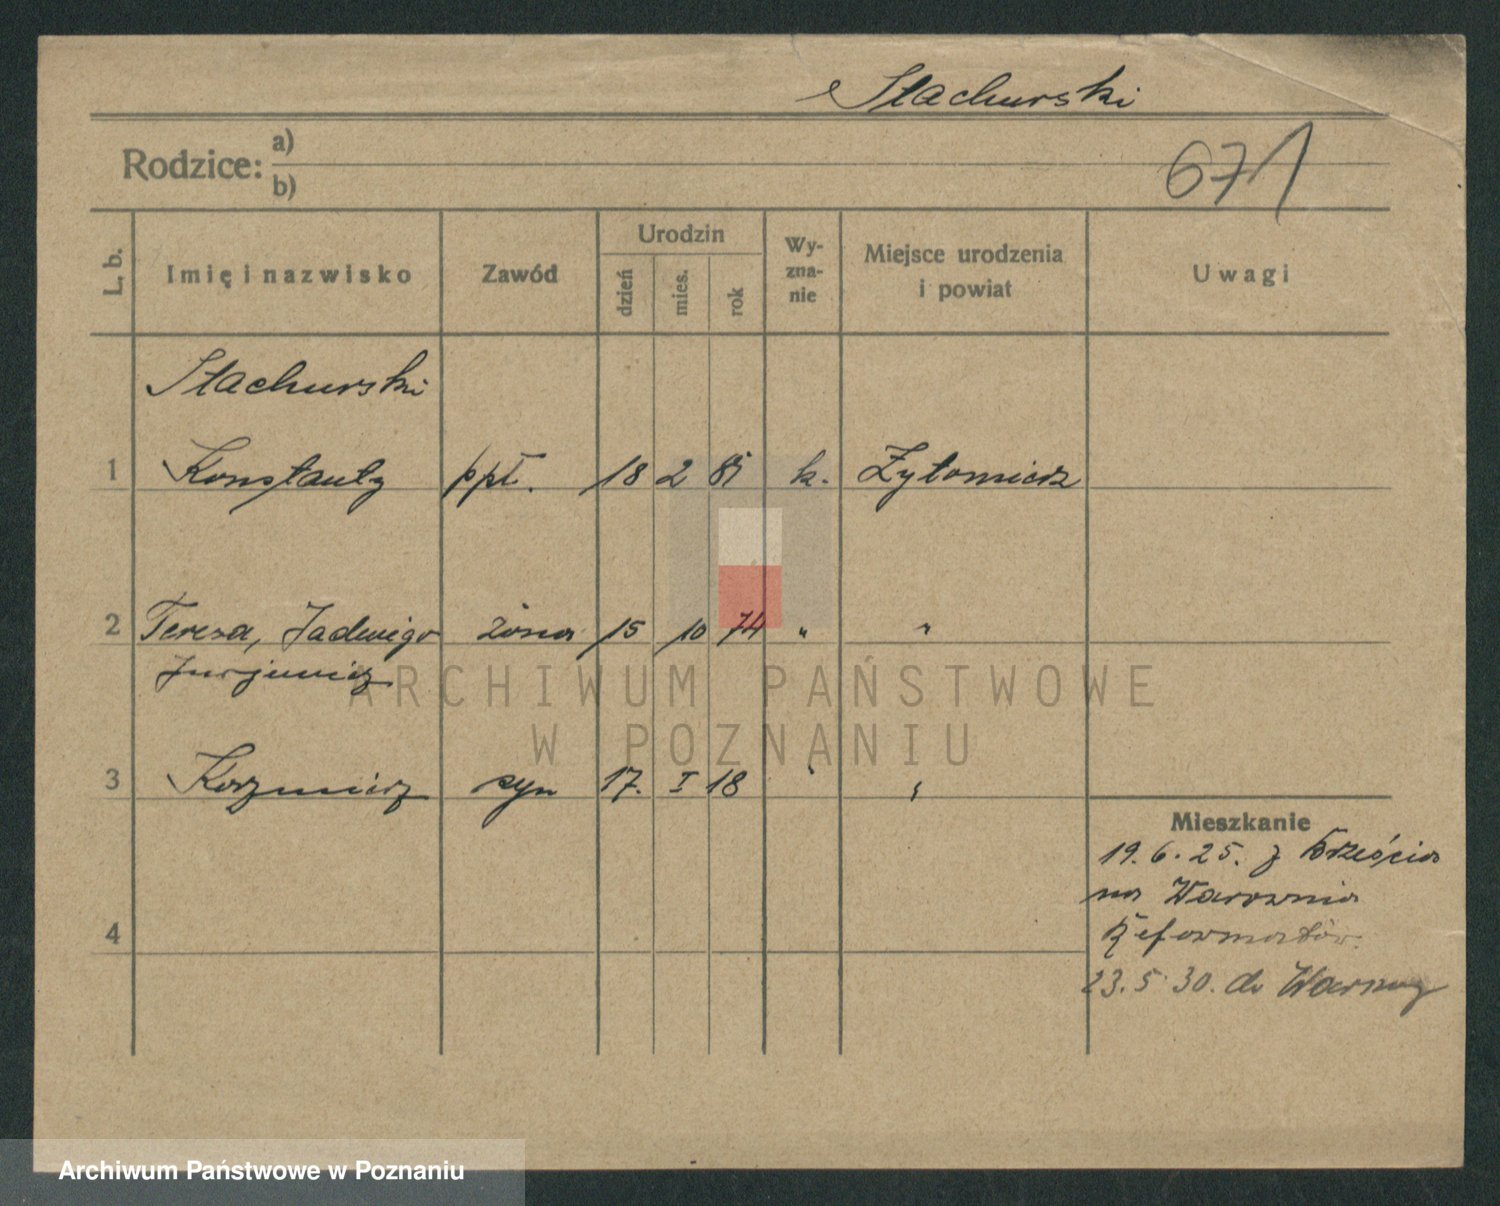 Stachurski
Rodzice: a)
b)
671
L. b.
Imię i nazwisko
Zawód
Urodzin
dzień
mies.
rok
Wy-
zna-
nie
Miejsce urodzenia
i powiat
Uwagi
Stachurski
1 Konstanty ppł. 18 2 85 k. Żytomierz
2 Teresa, Jadwiga żona 15 10 74 " "
Jurjewicz
3 Kazimierz syn 17. I 18 " "
4
Mieszkanie
19.6.25. z Brześcia
na Warownia
Reformatów
23.5.30. do Warszawy
ARCHIWUM PAŃSTWOWE
W POZNANIU
Archiwum Państwowe w Poznaniu